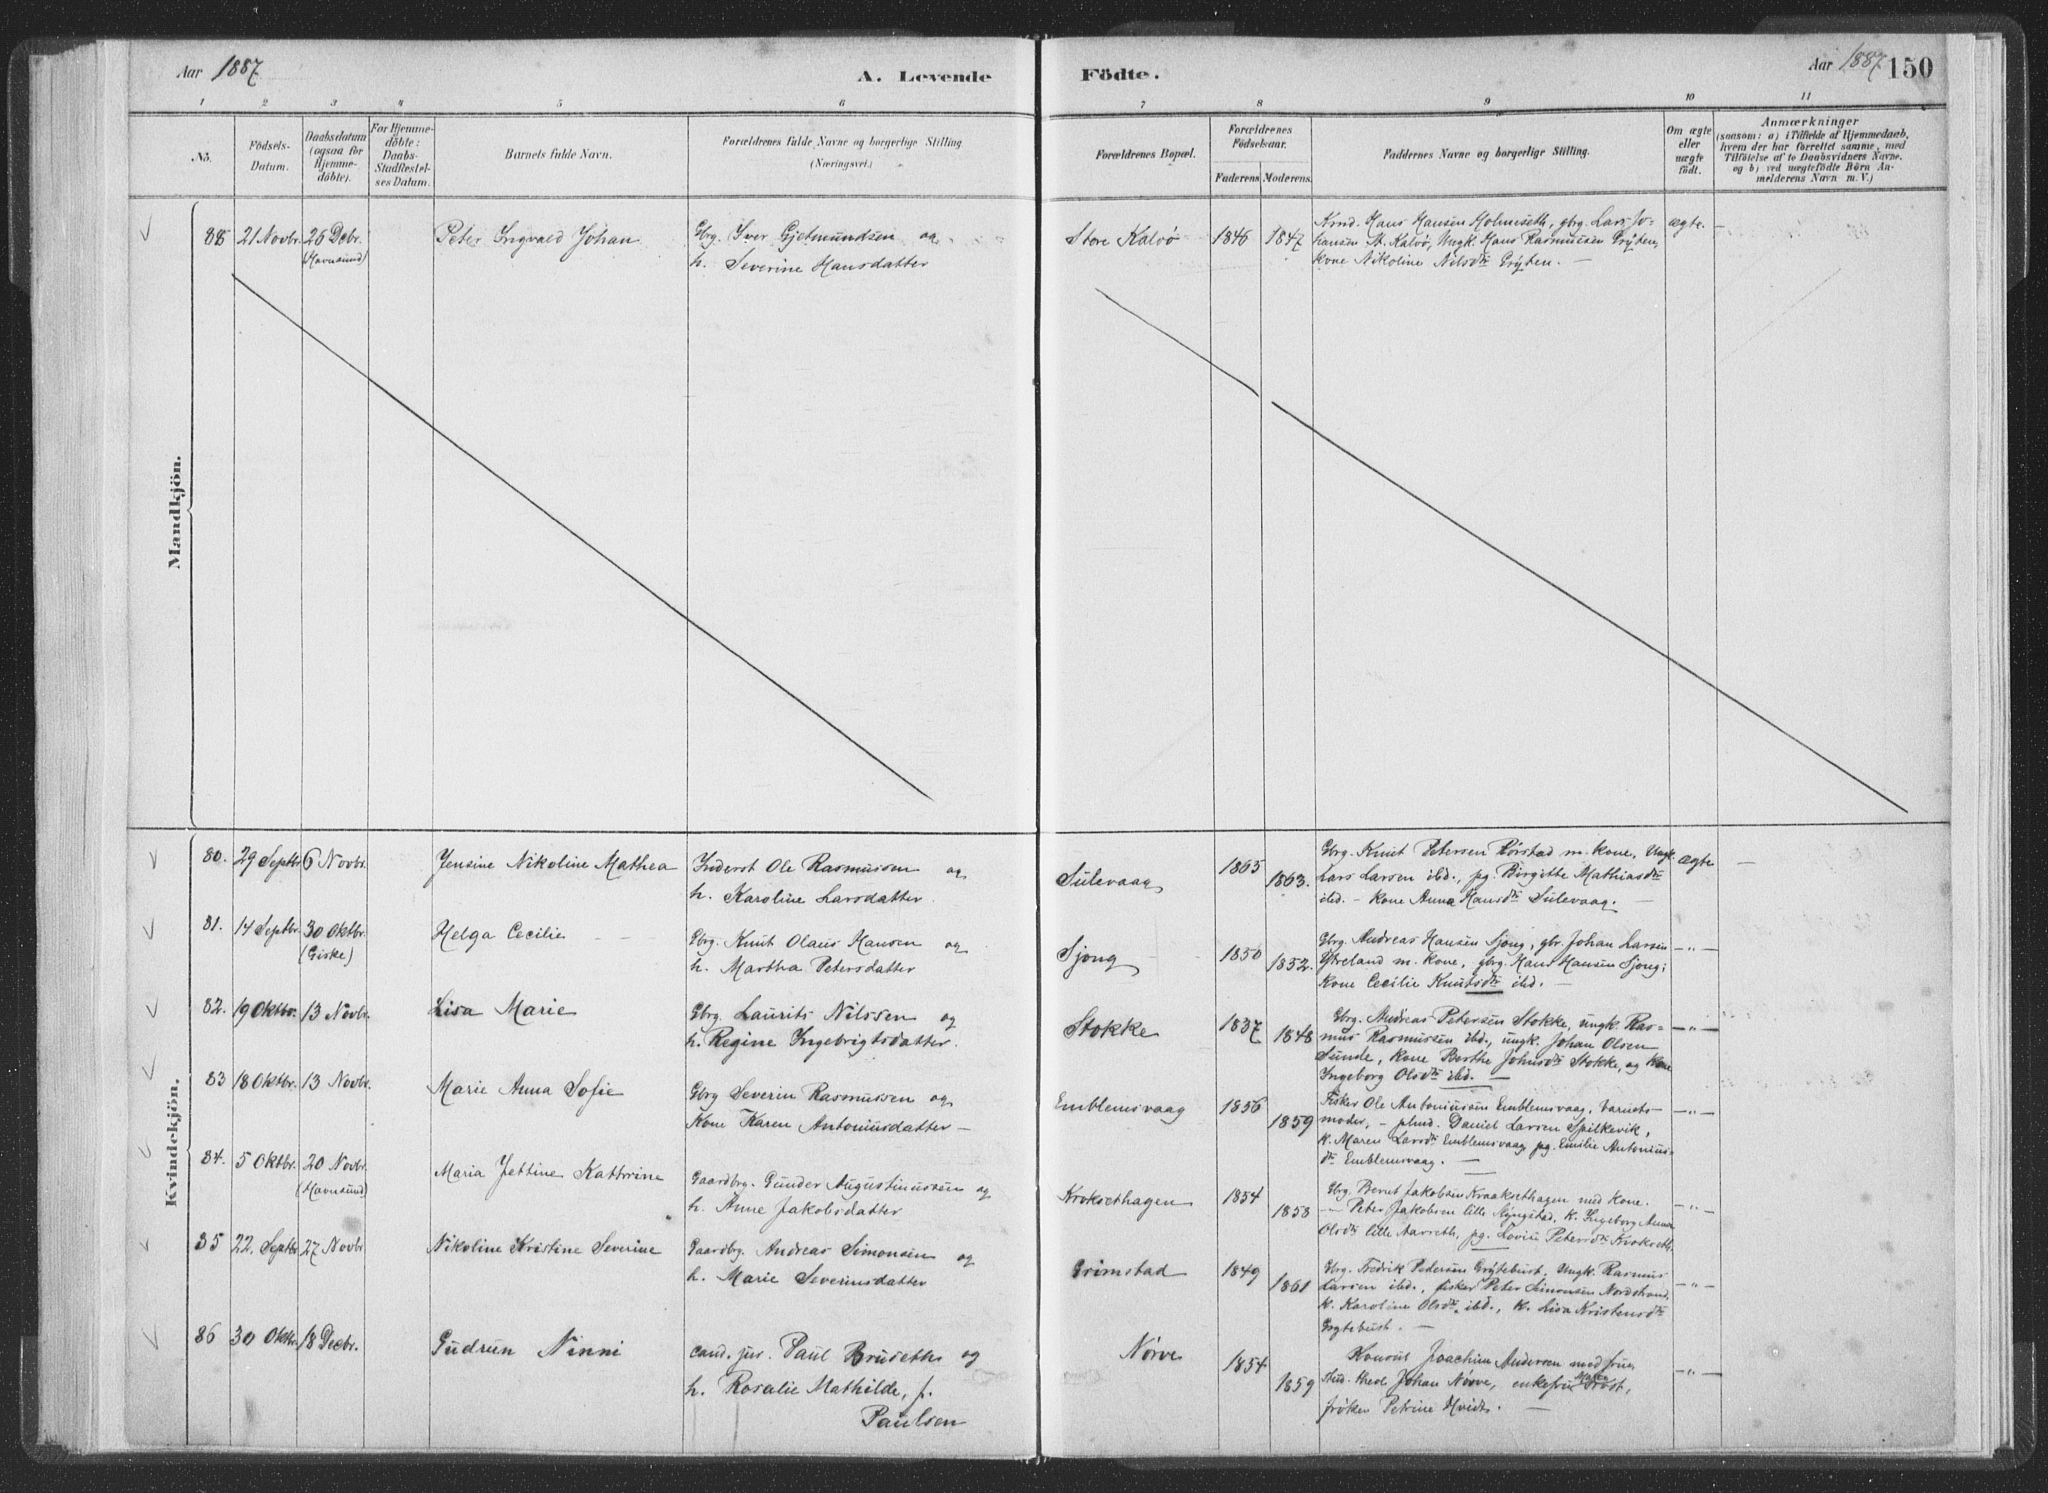 Aar 1887
A. Levende
Födte.
Aar 1887
150
1 2 3 4 5 6 7 8 9 10 11
No.
Födsels-
Datum.
Daabsdatum
(ogsaa for
Hjemme-
döbte).
For Hjemme-
döbte:
Daabs-
Stadfæstel-
ses Datum.
Barnets fulde Navn.
Forældrenes fulde Navne og borgerlige Stilling
(Næringsvei.)
Forældrenes Bopæl.
Forældrenes
Födselsaar.
Faderens Moderens.
Faddernes Navne og borgerlige Stilling.
Om ægte
eller
uægte
födt.
Anmærkninger
(saasom: a) i Tilfælde af Hjemmedaab,
hvem der har forrettet samme, med
Tilföielse af to Daabsvidners Navne.
og b) ved uægtefödte Börn An-
melderens Navn m. V.)
Mandkjön.
88 21 Novbr. 26 Debr.
(Havnsund)
Peter Ingvald Johan
Gbrg. Iver Gjetmundsen og
h. Severine Hansdatter
Store Kalvø
1846 1847
Hans Hansen Holmseth, gbrg. Lars Jo-
hansen St. Kalvø, Ungk. Hans Rasmussen Grÿten,
kone Nikoline Nilsdtr Grÿten. —
ægte. —
Kvindekjön.
80. 29 Septbr. 6 Novbr.
Jensine Nikoline Mathea
Inderst Ole Rasmussen og
h. Karoline Larsdatter.
Sulevaag
1865 1863.
Gbrg. Knut Petersen Rørstad m. kone, Ungk.
Lars Larsen ibd., pg. Birgitte Mathiasdtr
ibd. - Kone Anna Hansdtr Sulevaag. —
ægte —
81. 14 Septbr. 30 Oktbr.
(Giske)
Helga Cecilie
Gbrg. Knut Olaus Hansen og
h. Martha Petersdatter
Sjong
1850 1852.
Gbrg. Andreas Hansen Sjong, gbr. Johan Larsen
Ytreland m. kone, gbrg. Hans Hansen Sjong;
Kone Cecilie Knutsdtr ibd. —
—„— —
82. 19 Oktbr. 13 Novbr.
Lisa Marie
Gbrg. Laurits Nilssen og
h. Regine Ingebrigtsdatter.
Stokke
1837 1848
Gbrg. Andreas Petersen Stokke, ungk. Ras-
mus Rasmussen ibd., ungk. Johan Olsen
Sunde, Kone Berthe Johnsdtr Stokke, og Kone
Ingeborg Olsdtr ibd. —
—„— —
83 18 Oktbr. 13 Novbr.
Marie Anna Sofie
Gbrg Severin Rasmussen og
Kone Karen Antoniusdatter —
Emblemsvaag
1856 1859
Fisker Ole Antoniussen Emblemsvaag, Barnets-
moder, - Daniel Larsen Spilkevik,
k. Maren Larsdtr Emblemsvaag pg. Emilie Antonius-
dtr Emblemsvaag. —
—„— —
84. 5 Oktbr. 20 Novbr.
(Havnsund)
Maria Jettine Kathrine
Gaardbrg. Gunder Augustinussen og
h. Anne Jakobsdatter
Kroksethagen
1854 1858
Gbrg. Bernt Jakobsen Kraaksethagen med kone.
—„— Peter Jakobsen lille k. Ingeborg Anna
Olsdtr lille pg. Lovise Petersdtr Krokseth.
—„— —
85 22. Septbr 27 Novbr
Nikoline Kristine Severine
Gaardbrg. Andreas Simonsen og
h. Marie Severinsdatter
Grimstad
1849 1861
Gbrg. Fredrik Pedersen Grÿtebust, Ungk. Rasmus
Larsen ibd., fisker Peter Simonsen Nordstrand,
k. Karoline Olsdtr ibd., k. Lisa Kristensdtr
Grytebust. —
—„— —
86 30 Oktbr. 18 Decbr.
Gudrun Ninni
cand. jur. Paul Brudeths og
h. Rosalie Mathilde, f.
Paulsen
Nørve
1854 1859
Konsul Joachim Andersen med frue,
Stud. theol Johan Nørve, enkefrue Frost,
frøken Petrine Hvidt. —
—„— —